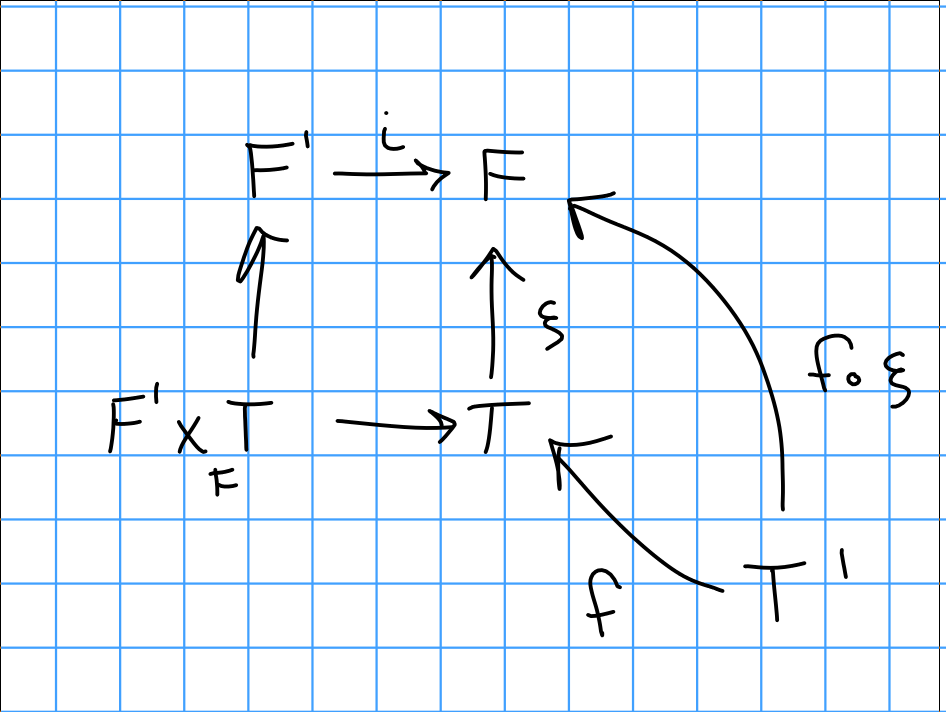 i
F' → F
ξ
f∘ξ
F' ×_F T → T
f
T'